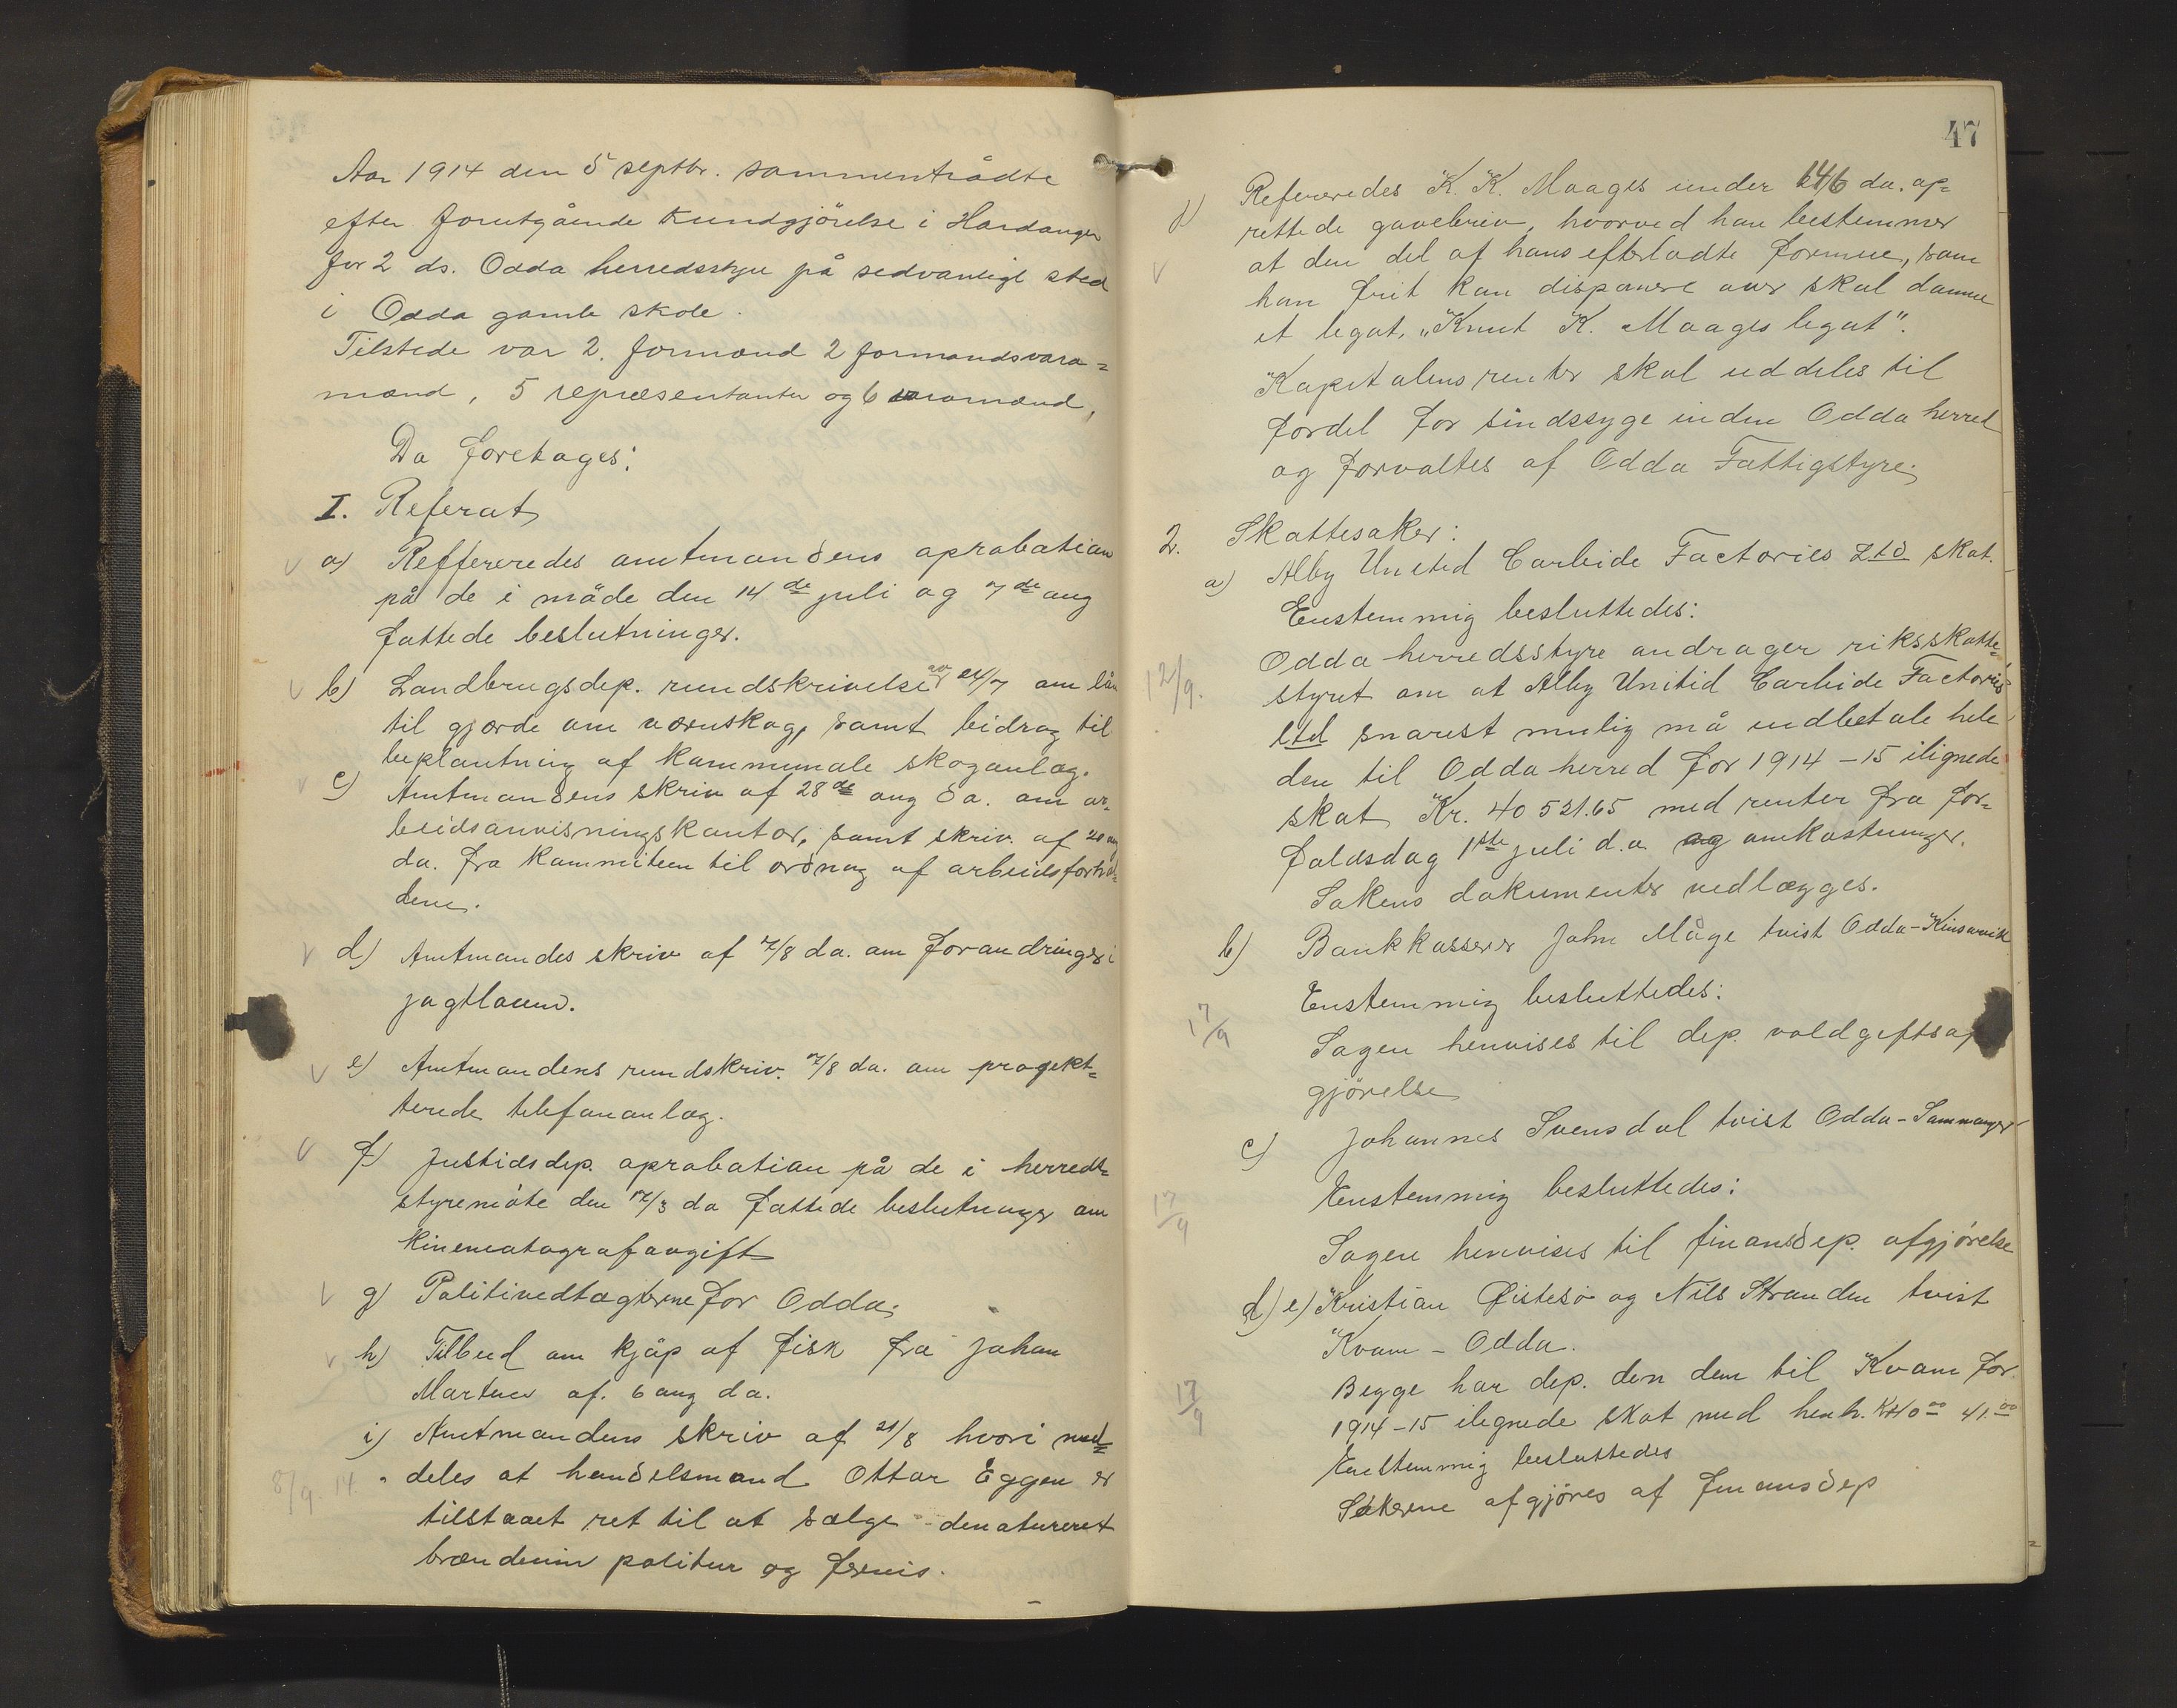 Aar 1914 den 5 septbr. sammentrådte
efter forutgående kundgjörelse i Hardanger
for 2 ds. Odda herredsstyre på sedvanligt sted
i Odda gamle skole.
Tilstede var 2. formænd 2 formandsvara=
mænd, 5 repræsentanter og 6 varamænd,
Da foretages:
I. Referat
a) Reffereredes amtmandens aprobation
på de i møde den 14de juli og 7de aug
fattede beslutninger.
b) Landbrugsdep. rundskrivelse av 24/7 om lån
til gjærde om værnskog, samt bidrag til
beplantning af kommunale skoganlæg.
c) Amtmandens skriv af 28de aug da. om ar=
beidsanvisningskontor, samt skriv. af 20 aug
da. fra kommiteen til ordnng af arbeidsforhol=
dene.
d) Amtmandes skriv af 7/8 da. om forandringer i
jagtloven.
e) Amtmandens rundskriv. 7/8 da. om projekt=
terede telefonanlæg.
f) Justidsdep. aprobation på de i herreds=
styremöte den 17/3 da fattede beslutninger om
kinematografavgift
g) Politivedtægterne for Odda.
h) Tilbud om kjöp af fisk fra Johan
af. 6 aug da.
i) Amtmandens skriv af 21/8 hvori med=
8/9. 14. deles at handelsmand Ottar Eggen er
tilstaaet ret til at sælge denatureret
brændevin politur og fernis.
47
Refereredes K. K. Maages under 14/6 da. op=
rettede gavebrev, hvorved han bestemmer
at den del af hans efterladte formue, som
han frit kan disponere over skal danne
et legat, "Knut K. Maages legat".
Kapitalens renter skal uddeles til
fordel for sindssyge inden Odda herred
og forvaltes af Odda Fattigstyre.
2. Skattesaker:
a) Alby United Carbide Factories Ltd skat.
Enstemmig besluttedes:
Odda herredsstyre andrager riksskatte=
12/9. styret om at Alby Unitid Carbide Factories
Ltd snarest mulig må indbetale hele
den til Odda herred for 1914-15 ilignede
skat Kr. 40 521.65 med renter fra for=
faldsdag 1ste juli d.a og omkostninger.
Sakens dokumenter vedlægges.
b) Bankkasserer John Måge tvist Odda-Kinsarvik
Enstemmig besluttedes:
17/9 Sagen henvises til dep. voldgiftsaf
gjörelse
c) Johannes Svensdal tvist Odda-Samnanger
Enstemmig besluttedes:
17/9
Sagen henvises til finansdep. afgjörelse
d) e) Kristian Øistesö og Nils Stranden tvist
Kvam - Odda.
Begge har dep. den dem til Kvam for
17/9 1914-15 ilignede skat med henh. 41.00
Enstemmig besluttedes
Sakerne afgjöres af Finansdep